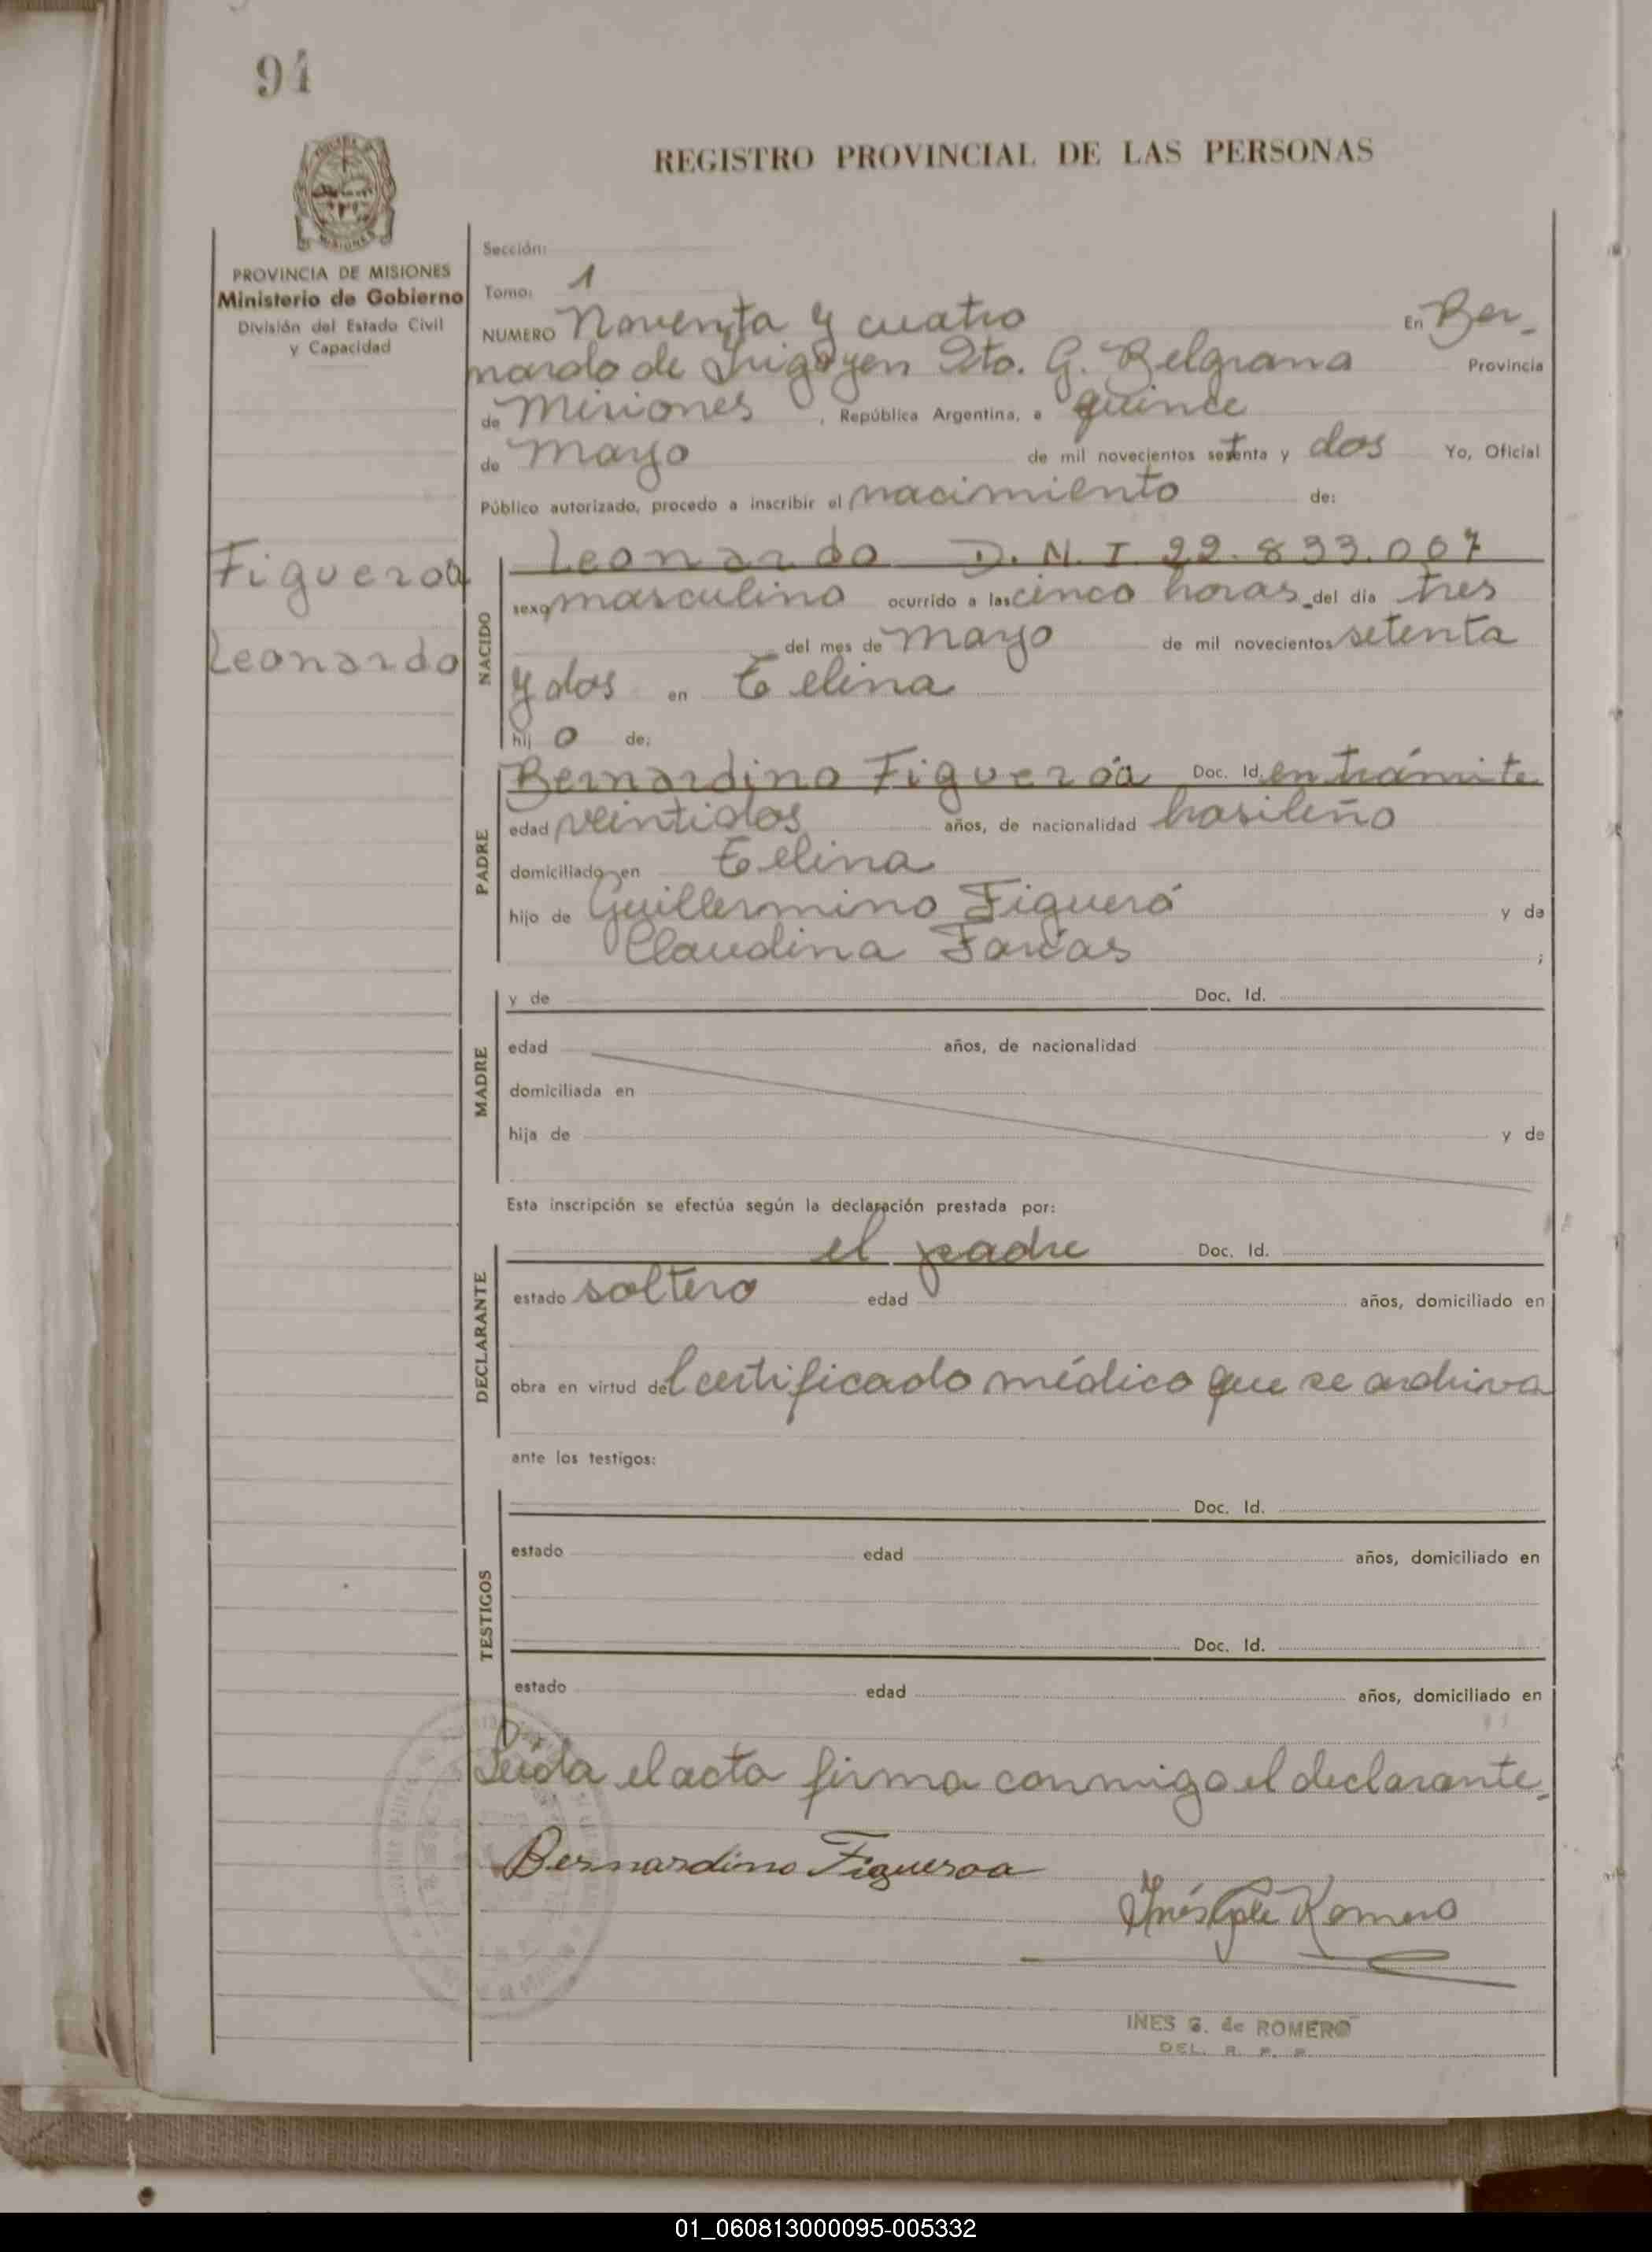 94
REGISTRO PROVINCIAL DE LAS PERSONAS
PROVINCIA DE MISIONES
Ministerio de Gobierno
División del Estado Civil
y Capacidad
Figueroa
Leonardo
Sección:
Tomo: 1
NUMERO Noventa y cuatro En Ber-
nardo de Irigoyen Dto. G. Belgrano Provincia
de Misiones, República Argentina, a quince
de Mayo de mil novecientos setenta y dos Yo, Oficial
Público autorizado, procedo a inscribir el nacimiento de:
NACIDO
Leonardo D.N.I 22.833.007
sexo masculino ocurrido a las cinco horas del día tres
del mes de mayo de mil novecientos setenta
y dos en
hijo de:
PADRE
Bernardino Figueroa Doc. Id. en trámite
edad veintidos años, de nacionalidad brasileño
domiciliado en
hijo de Guillermino Figueró y de
Claudina Farías ;
MADRE
y de Doc. Id.
edad años, de nacionalidad
domiciliada en
hija de y de
Esta inscripción se efectúa según la declaración prestada por:
DECLARANTE
el padre Doc. Id.
estado soltero edad años, domiciliado en
obra en virtud del certificado médico que se archiva
ante los testigos:
TESTIGOS
Doc. Id.
estado edad años, domiciliado en
Doc. Id.
estado edad años, domiciliado en
Leída el acta firma conmigo el declarante.
Bernardino Figueroa
Inés Romero
INES G. de ROMERO
DEL. R. P. P.
01_060813000095-005332